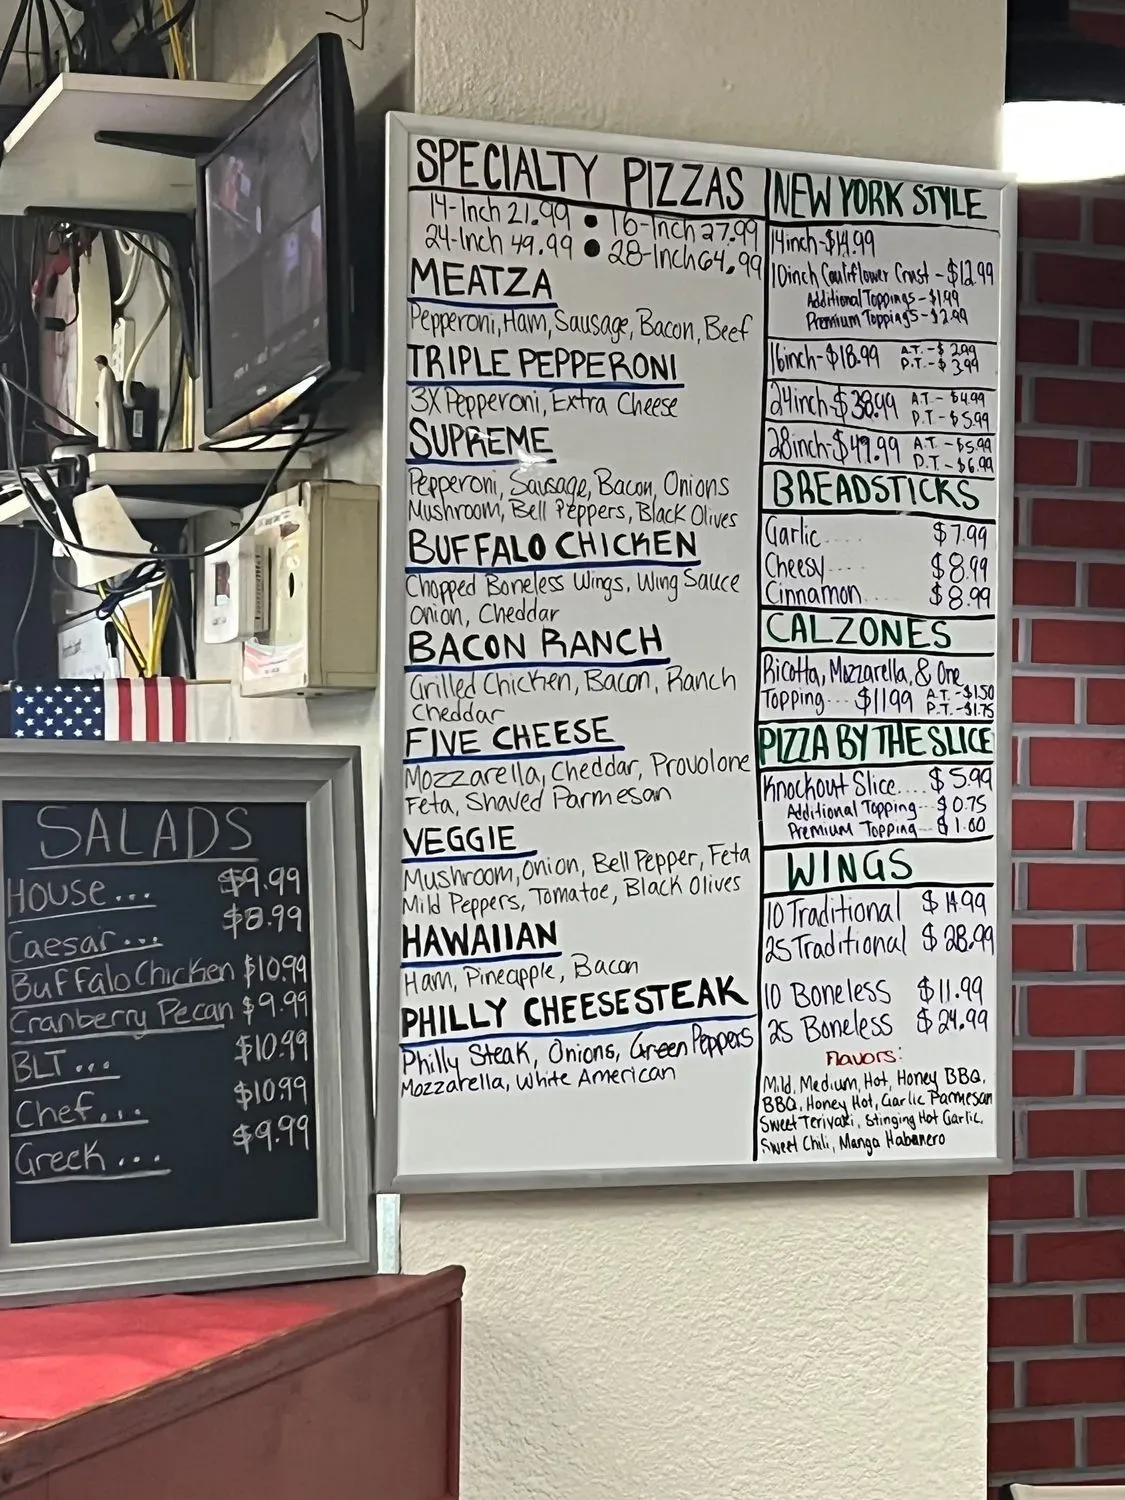 SPECIALTY PIZZAS
14-Inch 21.99 • 16-Inch 27.99
24-Inch 49.99 • 28-Inch 64.99
MEATZA
Pepperoni, Ham, Sausage, Bacon, Beef
TRIPLE PEPPERONI
3X Pepperoni, Extra Cheese
SUPREME
Pepperoni, Sausage, Bacon, Onions
Mushroom, Bell Peppers, Black Olives
BUFFALO CHICKEN
Chopped Boneless Wings, Wing Sauce
Onion, Cheddar
BACON RANCH
Grilled Chicken, Bacon, Ranch
Cheddar
FIVE CHEESE
Mozzarella, Cheddar, Provolone
Feta, Shaved Parmesan
VEGGIE
Mushroom, Onion, Bell Pepper, Feta
Mild Peppers, Tomatoe, Black Olives
HAWAIIAN
Ham, Pineapple, Bacon
PHILLY CHEESESTEAK
Philly Steak, Onions, Green Peppers
Mozzarella, White American
NEW YORK STYLE
14inch-$14.99
10inch Cauliflower Crust-$12.99
Additional Toppings-$1.99
Premium Toppings-$2.99
16inch-$18.99 A.T.-$2.99
P.T.-$3.99
24inch-$38.99 A.T.-$4.99
P.T.-$5.99
28inch-$49.99 A.T.-$5.99
P.T.-$6.99
BREADSTICKS
Garlic..... $7.99
Cheesy..... $8.99
Cinnamon.... $8.99
CALZONES
Ricotta, Mozzarella, & One
Topping... $11.99 A.T.-$1.50
P.T.-$1.75
PIZZA BY THE SLICE
Knockout Slice.... $5.99
Additional Topping-- $0.75
Premium Topping-- $1.00
WINGS
10 Traditional $14.99
25 Traditional $28.99
10 Boneless $11.99
25 Boneless $24.99
Flavors:
Mild, Medium, Hot, Honey BBQ,
BBQ, Honey Hot, Garlic Parmesan
Sweet Teriyaki, Stinging Hot Garlic,
Sweet Chili, Mango Habanero
SALADS
HOUSE... $9.99
Caesar... $8.99
Buffalo Chicken $10.99
Cranberry Pecan $9.99
BLT... $10.99
Chef... $10.99
Greek... $9.99